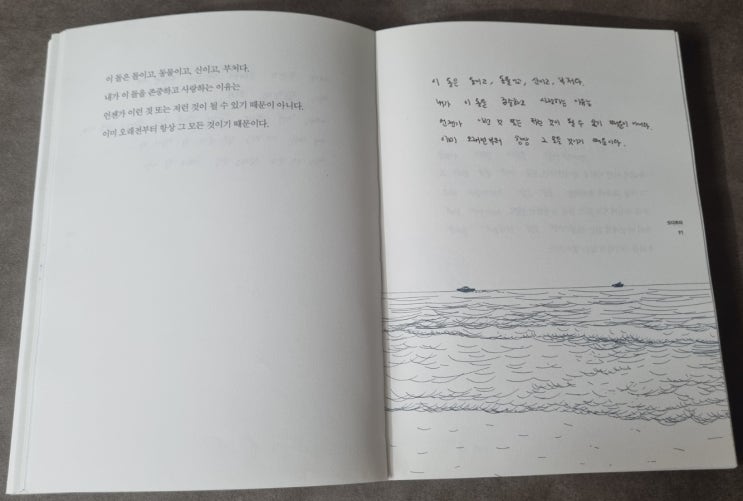 이 돌은 돌이고, 동물이고, 신이고, 부처다.
내가 이 돌을 존중하고 사랑하는 이유는
언젠가 이런 것 또는 저런 것이 될 수 있기 때문이 아니다.
이미 오래전부터 항상 그 모든 것이기 때문이다.
이 돌은 돌이고, 동물이고, 신이고, 부처다.
내가 이 돌을 존중하고 사랑하는 이유는
언젠가 이런 것 또는 저런 것이 될 수 있기 때문이 아니다.
이미 오래전부터 항상 그 모든 것이기 때문이다.
싯다르타